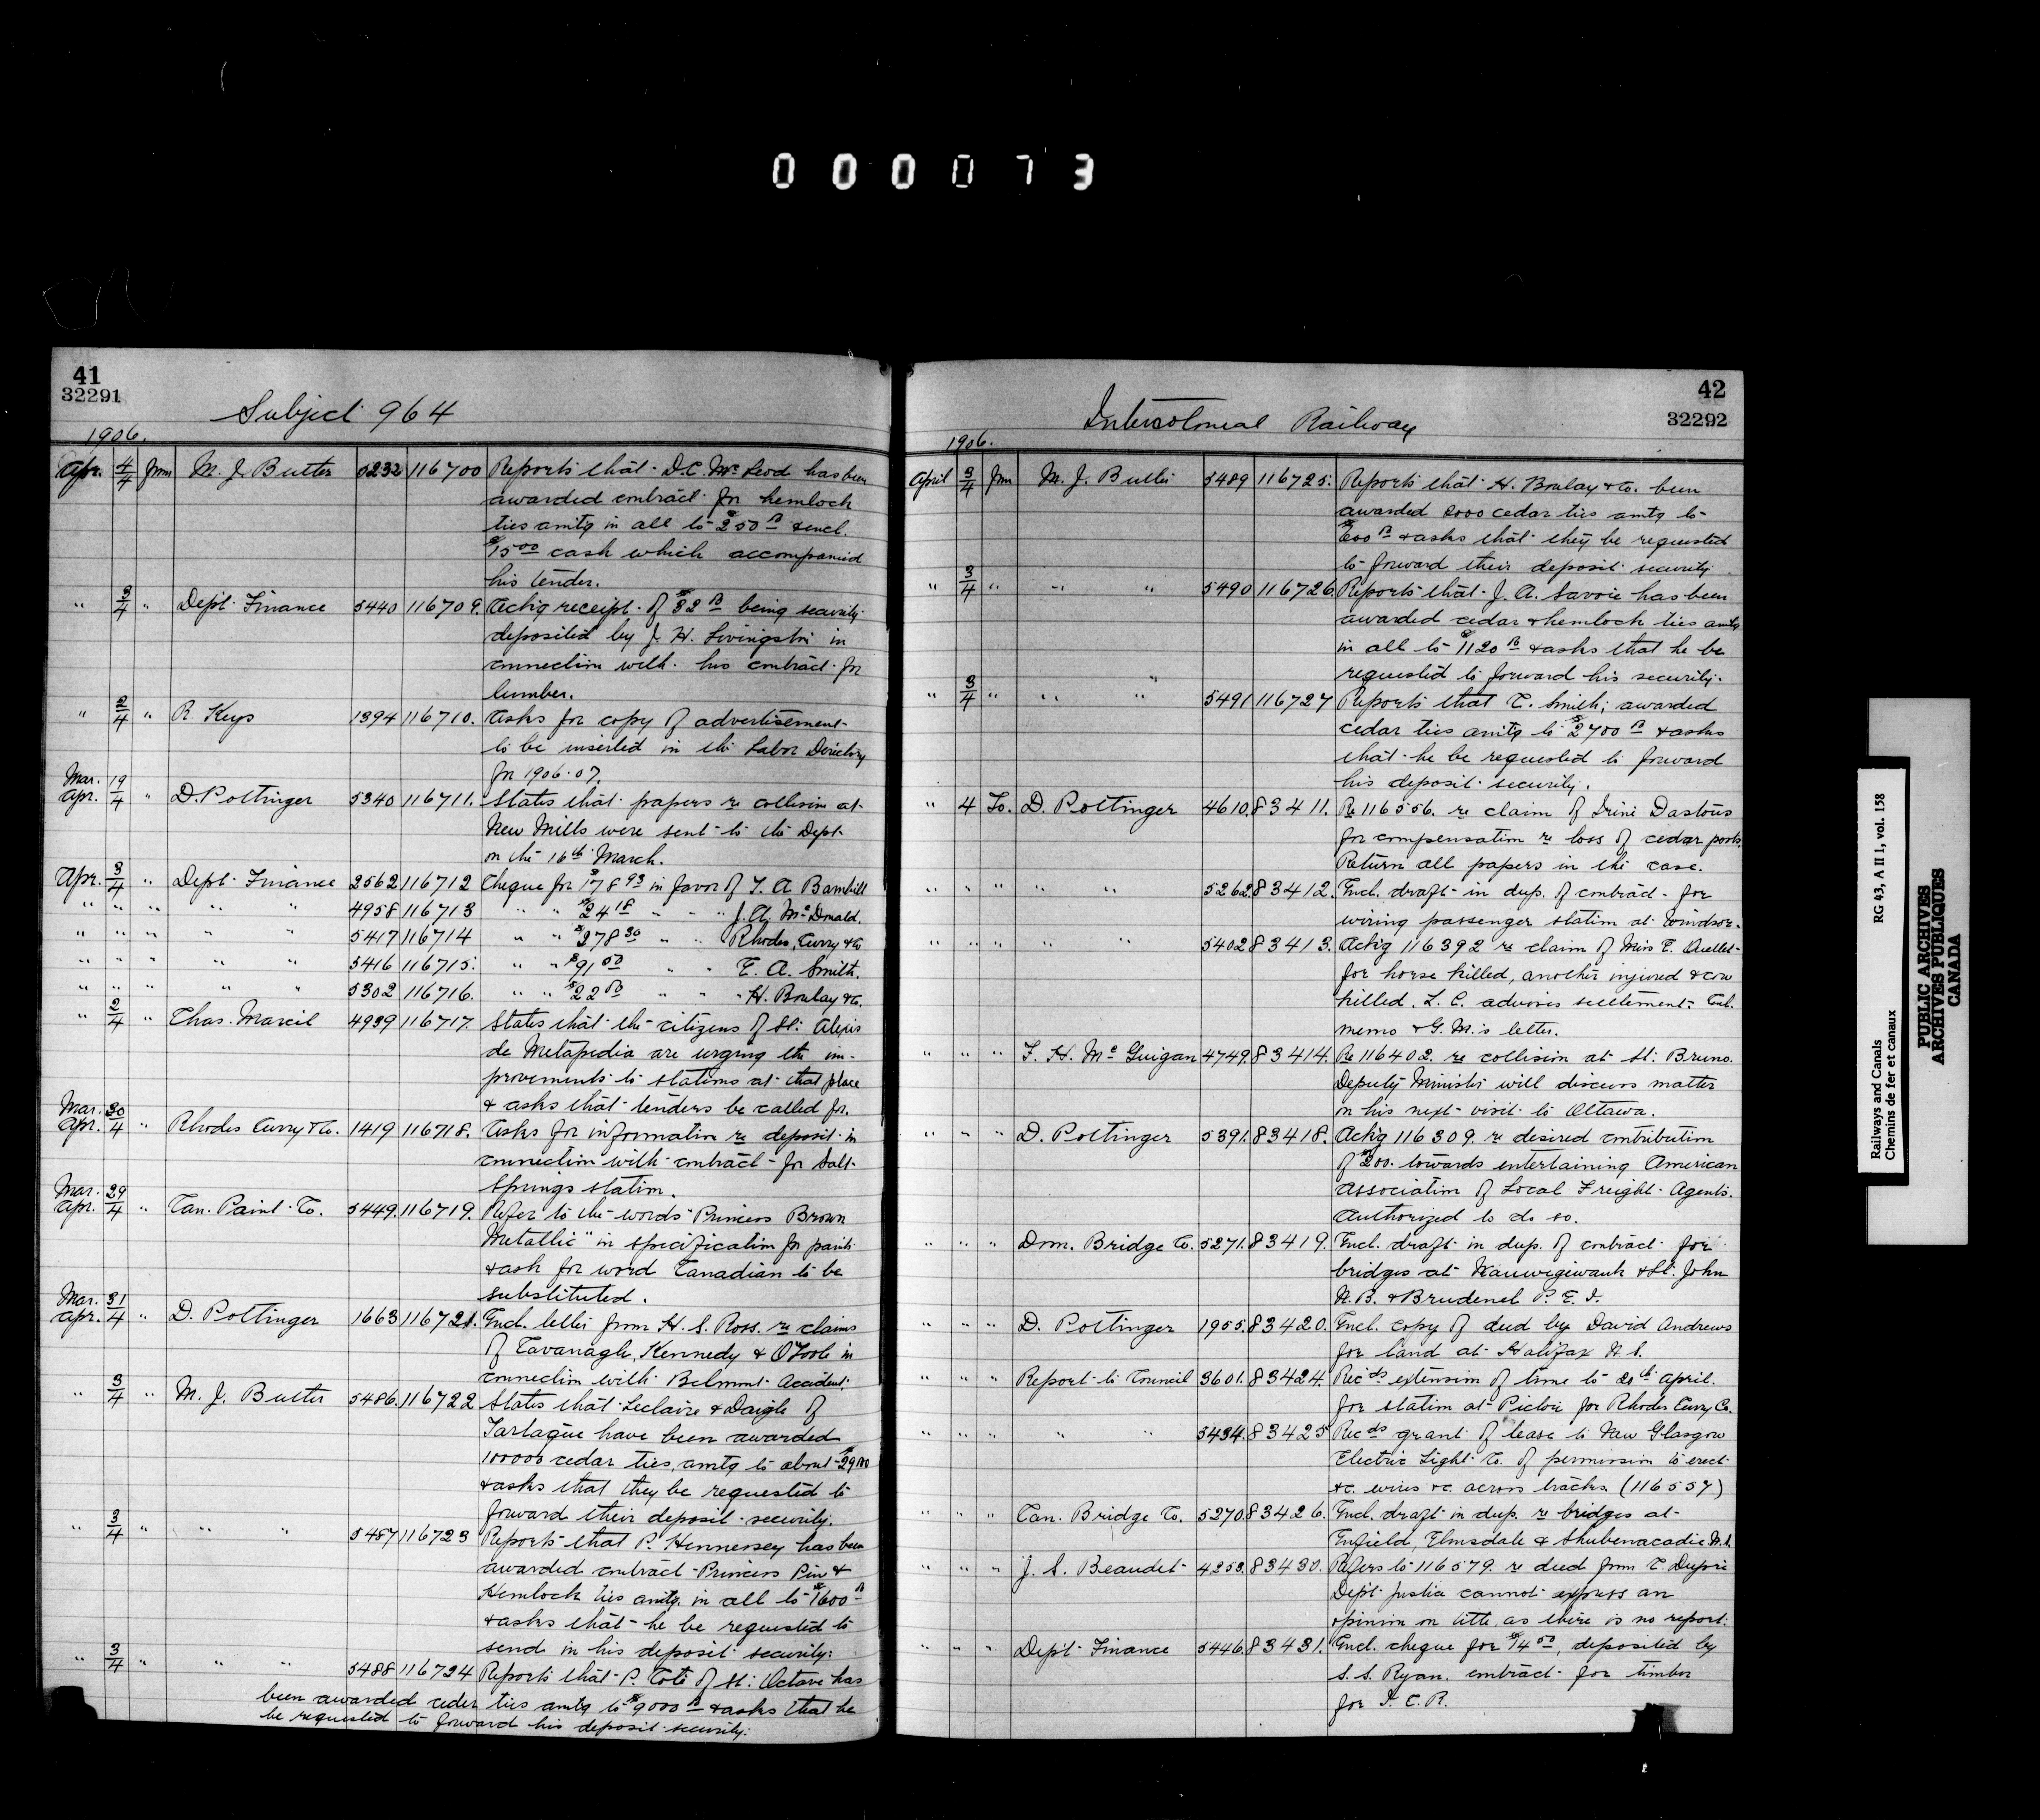 000073
41
32291
Subject 964
1906.
Apr. 4/4 from M. J. Butler 5232 116700 Reports that D.C. McLeod has been
awarded contract for hemlock
ties amtg in all to $250 00 & encl.
$15 00 cash which accompanied
his tender.
" 3/4 " Dept. Finance 5440 116709. Ackg receipt of $32 00 being security
deposited by J. H. Livingston in
connection with his contract for
lumber.
" 2/4 " R. Keys 1394 116710. Asks for copy of advertisement
to be inserted in the Labor Directory
for 1906-07.
Mar. 19
Apr. 4 " D. Pottinger 5340 116711. States that papers re collision at
New Mills were sent to the Dept.
on the 16th March.
Apr. 3/4 " Dept. Finance 2562 116712 Cheque for $178 93 in favor of T. A. Barnhill
" " " " " 4958 116713 " " $24 18 " " " J. A. McDonald.
" " " " " 5417 116714 " " $278 30 " " Rhodes, Curry & Co
" " " " " 5416 116715. " " $91 50 " " E. A. Smith.
" " " " " 5302 116716. " " $22 50 " " " H. Boulay & Co.
" 2/4 " Chas. Marcil 4939 116717. States that the citizens of St. Alexis
de Metapedia are urging the im-
provements to stations at that place
& asks that tenders be called for.
Mar. 30
Apr. 4 " Rhodes Curry & Co. 1419 116718. Asks for information re deposit in
connection with contract for Salt
Springs station.
Mar. 29
Apr. 4 " Can. Paint Co. 5449. 116719. Refer to the words "Princess Brown
Metallic" in specification for paint
& ask for word Canadian to be
substituted.
Mar. 31
Apr. 4 " D. Pottinger 1663 116721. Encl. letter from H. S. Ross. re claims
of Cavanagh, Kennedy & O'Toole in
connection with Belmont Accident.
" 3/4 " M. J. Butler 5486. 116722 States that Leclaire & Daigle of
Tartague have been awarded
100000 cedar ties, amtg to about $29 000
& asks that they be requested to
forward their deposit security.
" 3/4 " " " 5487 116723 Reports that P. Hennersey has been
awarded contract Princess Pine &
Hemlock ties amtg. in all to $1600 00
& asks that he be requested to
send in his deposit security.
" 3/4 " " " 5488 116724 Reports that P. Coté of St. Octave has
been awarded ceder ties amtg to $9000 00 & asks that he
be requested to forward his deposit security.
42
32292
Intercolonial Railway
1906.
April 3/4 from M. J. Butler 5489 116725. Reports that H. Boulay & Co. been
awarded 2000 cedar ties amtg to
$600 00 & asks that they be requested
to forward their deposit security
" 3/4 " " " 5490 116726. Reports that J. A. Savoie has been
awarded cedar & hemlock ties amtg
in all to $1120 00 & asks that he be
requested to forward his security.
" 3/4 " " " 5491 116727 Reports that C. Smith, awarded
cedar ties amtg to $2700 00 & asks
that he be requested to forward
his deposit security.
" 4 To. D. Pottinger 4610. 83411. Re 116556. re claim of Irine Dastous
for compensation re loss of cedar posts.
Return all papers in the case.
" " " " " 5262. 83412. Encl. draft in dup. of contract for
wiring passenger station at Windsor.
" " " " " 5402 83413. Ackg 116392 re claim of Miss E. Ouellet
for horse killed, another injured & cow
killed. L. C. advises settlement. Encl.
memo & G. M.'s letter.
" " " F. H. McGuigan 4749. 83414. Re 116402. re collision at St. Bruno.
Deputy Minister will discuss matter
on his next visit to Ottawa.
" " " D. Pottinger 5391. 83418. Ackg 116309. re desired contribution
of $200. towards entertaining American
Association of Local Freight Agents.
Authorized to do so.
" " " Dom. Bridge Co. 5271. 83419. Encl. draft in dup. of contract for
bridges at Nauwigiwauk & St. John
N.B. & Brudenel P. E. I.
" " " D. Pottinger 1955. 83420. Encl. copy of deed by David Andrews
for land at Halifax N. S.
" " " Report to Council 3601. 83424. Recds extension of time to 20th April.
for station at Pictou for Rhodes Curry Co.
" " " " " 5434. 83425 Recds grant of lease to New Glasgow
Electric Light Co. of permission to erect
&c. wires &c. across tracks. (116557)
" " " Can. Bridge Co. 5270. 83426. Encl. draft in dup. re bridges at
Enfield, Elmsdale & Shubenacadie N.S.
" " " J. S. Beaudet 4253. 83430. Refers to 116579. re deed from C. Dupré
Dept. Justice cannot express an
opinion on title as there is no report.
" " " Dept. Finance 5446. 83431. Encl. cheque for $14 50, deposited by
S. S. Ryan. contract for timber
for I. C. R.
Railways and Canals
Chemins de fer et canaux
RG 43, A II 1, vol. 158
PUBLIC ARCHIVES
ARCHIVES PUBLIQUES
CANADA